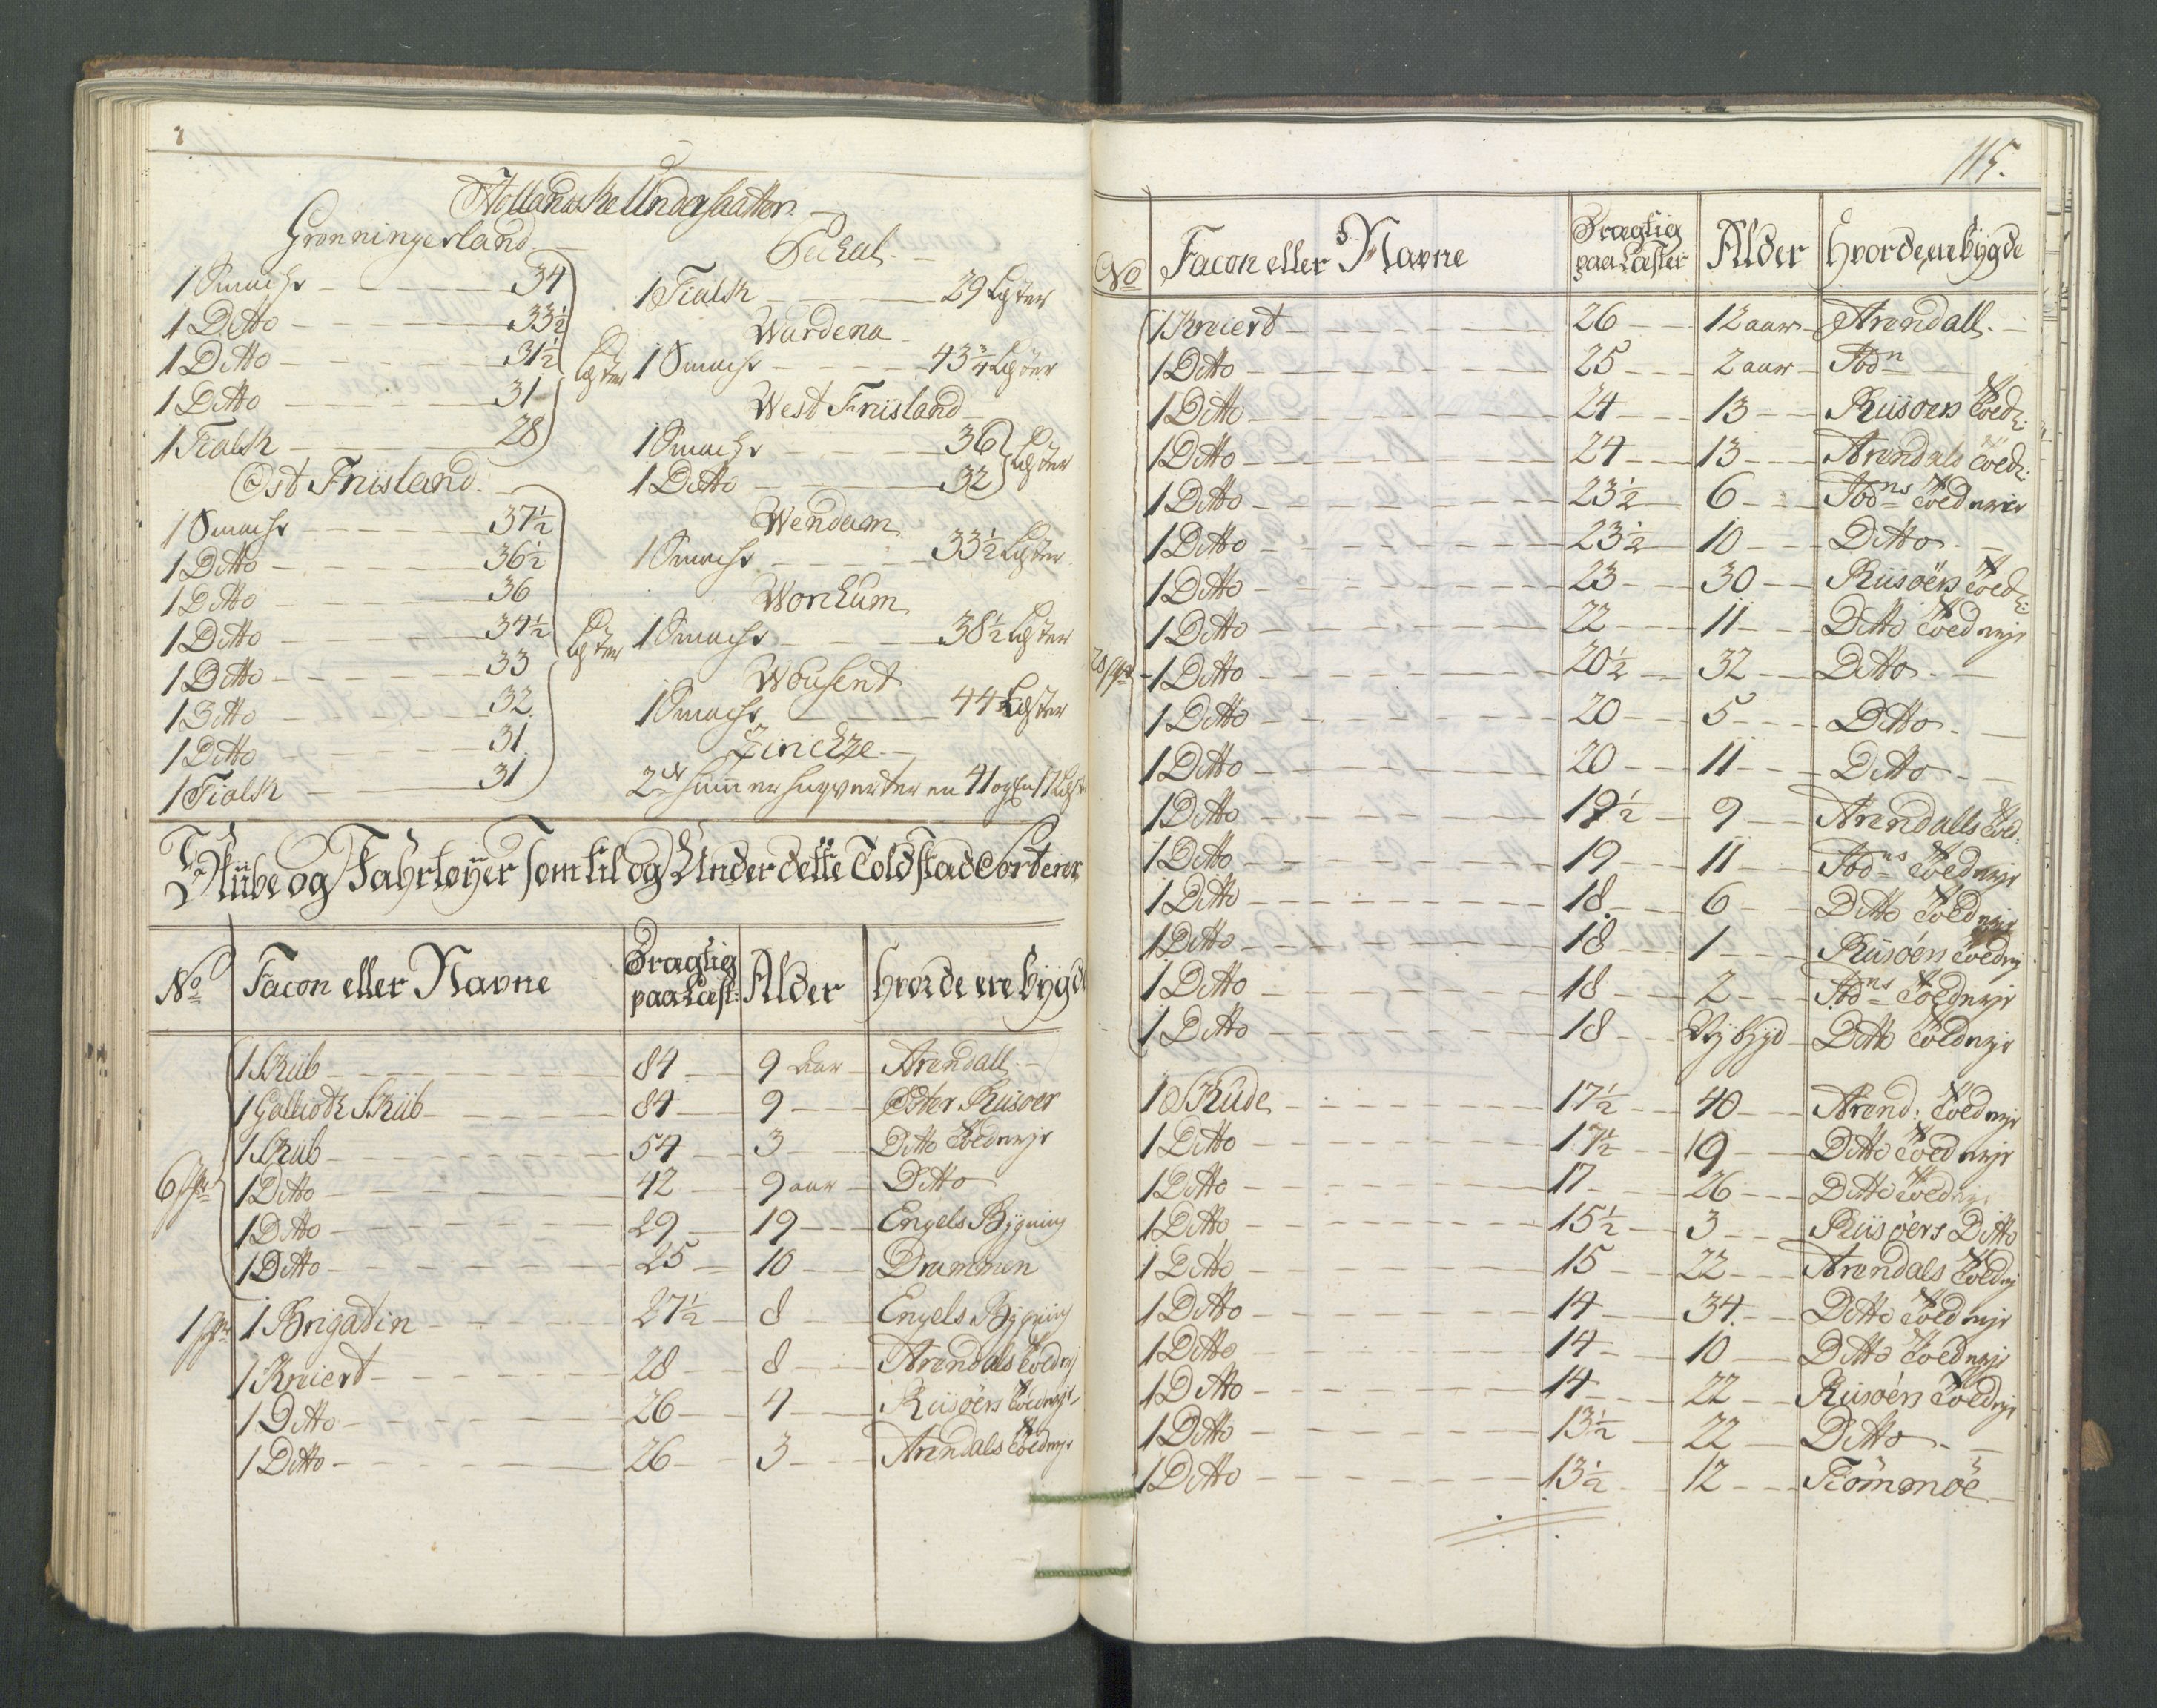 Hollandske Undersaatter.
Grønningerland
1 Smachr 34
1 Ditto 33½
1 Ditto 31½
1 Ditto 31
1 Tialk 28
Lester
Ost Friisland
1 Smachr 37½
1 Ditto 36½
1 Ditto 36
1 Ditto 34½
1 Ditto 33
1 Ditto 32
1 Ditto 31
1 Tialk 31
Lester
Peckel.
1 Tialk 29 Lester
Wardena
1 Smachr 43¾ Lester
West Friisland
1 Smachr 36
1 Ditto 32
Lester
Wendam
1 Smachr 33½ Lester
Worckum
1 Smachr 38½ Lester
Wousent
1 Smachr 44 Lester
Zirickze
2de en 41 og 17
Skiibe og Fahrtøyer som til og Under dette Toldstad Sorterer
No Facon eller Navne Dragtig paa Læst: Alder hvor de ere bygde
1 Skib 84 9 Aar Arendall
1 Gallioth Skib 84 9 Øster Riisøer
1 Skib 54 3 Ditto Toldmejr
6 1 Ditto 42 9 aar Ditto
1 Ditto 29 19 Engels Bygning
1 Ditto 25 10 Drammen
1 1 Brigatin 27½ 8 Engels Bygning
1 Kreiert 28 8 Arendals Toldmej
1 Ditto 26 4 Riisøers Toldmejr
1 Ditto 26 3 Arendals Toldmejr
115.
No Facon eller Navne Dragtig paa Læster Alder hvor de ere bygde
1 Kreiert 26 12 aar Arendall.
1 Ditto 25 2 aar Ibdn
1 Ditto 24 13 Riisøers Toldr:
1 Ditto 24 13 Arendals Toldr:
1 Ditto 23½ 6 Ibdns Toldmejr
1 Ditto 23½ 10 Ditto
1 Ditto 23 30 Riisøers Toldr:
1 Ditto 22 11 Ditto Toldmejr
1 Ditto 20½ 32 Ditto
1 Ditto 20 5 Ditto
1 Ditto 20 11 Ditto
1 Ditto 19½ 9 Arendalls Told:
1 Ditto 19 11 Ibdns Toldmejr
1 Ditto 18 6 Ditto Toldmejr
1 Ditto 18 1 Riisøers Toldmej
1 Ditto 18 2 Ibdns Toldmejr
1 Ditto 18 Nybygd Ditto Toldmejr
1 Skude 17½ 40 Arend: Toldmejr
1 Ditto 17½ 19 Ditto Toldmejr
1 Ditto 17 26 Ditto Toldmej
1 Ditto 15½ 3 Riisøers Ditto
1 Ditto 15 22 Arendals Toldmej
1 Ditto 14 34 Ditto Toldmejr
1 Ditto 14 10 Ditto Toldmejr
1 Ditto 14 22 Riisøers Toldmejr
1 Ditto 13½ 22 Ditto
1 Ditto 13½ 12 Tromøe